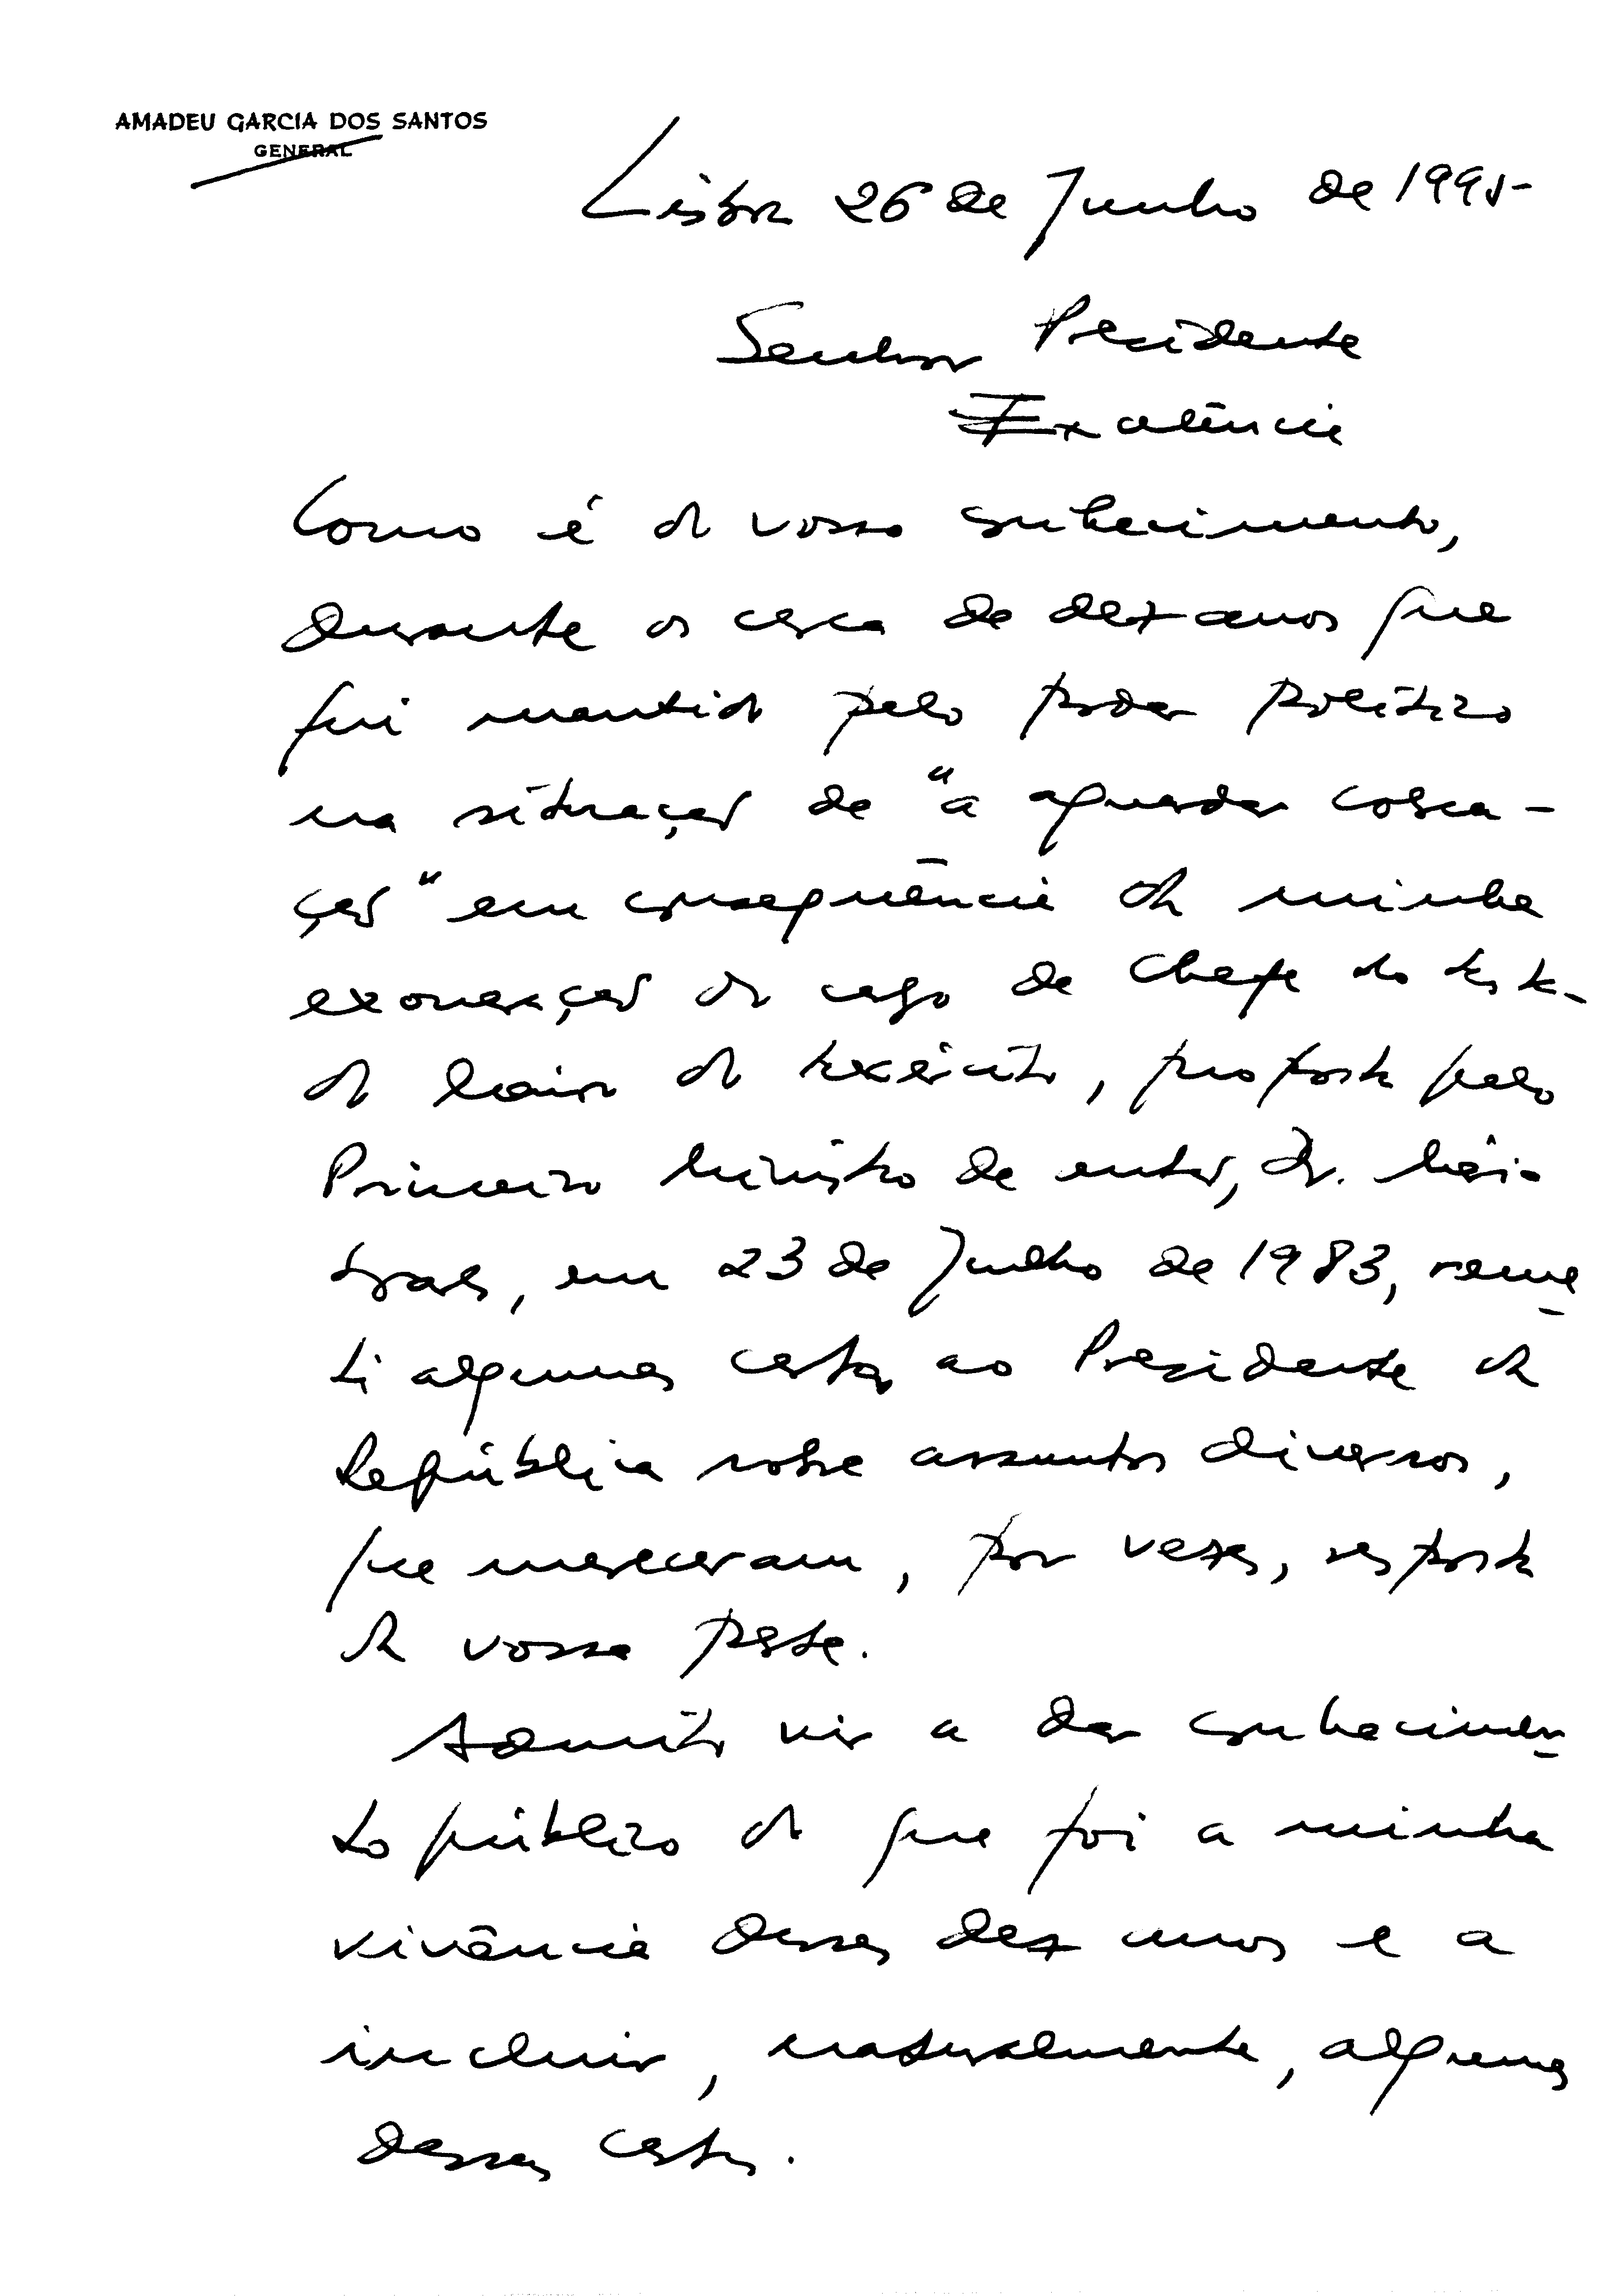 AMADEU GARCIA DOS SANTOS
GENERAL
Lisboa 26 de Junho de 1995
Senhor Presidente
Excelência
Como é do vosso conhecimento,
durante os cerca de dez anos que
fui mantido pelo poder político
na situação de "a aguardar coloca-
ção" em consequência da minha
exoneração do cargo de Chefe do Esta-
do Maior do Exército, proposta pelo
Primeiro Ministro de então, Dr. Mário
Soares, em 23 de Julho de 1983, reme
ti algumas cartas ao Presidente da
República sobre assuntos diversos,
que mereceram, por vezes, resposta
da vossa parte.
Admito vir a dar conhecimen
to público do que foi a minha
vivência desses dez anos e a
incluir, naturalmente, algumas
dessas cartas.